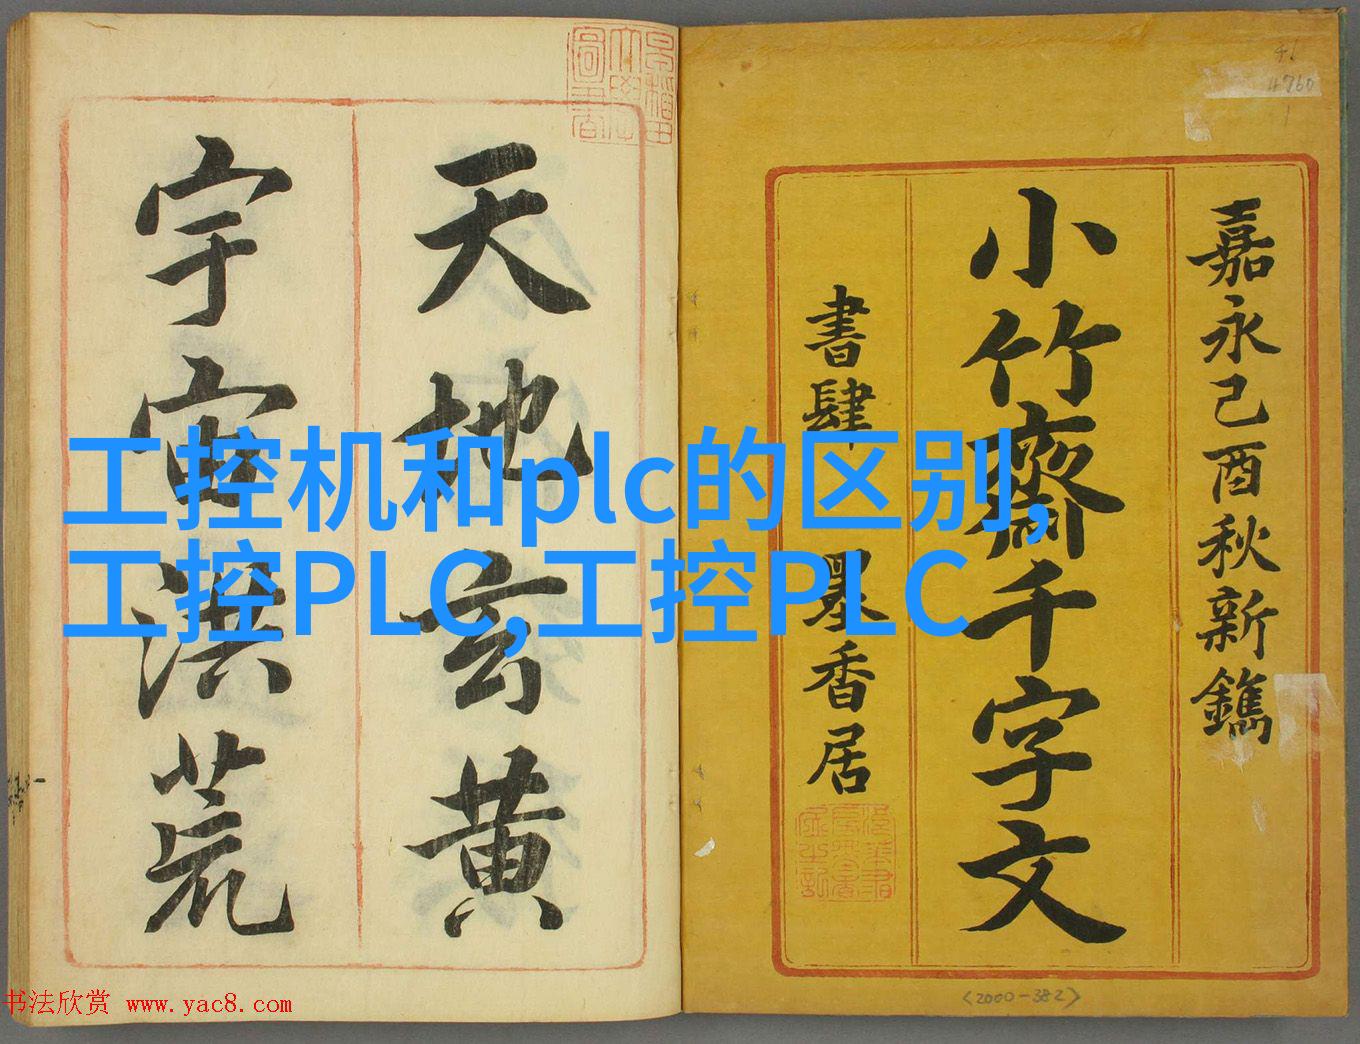 嘉永己酉秋新鐫
小竹齋千字文
書肆 墨香居
天地玄黄
宇宙洪荒
工控机和plc的区别,
工控PLC,工控PLC
书法欣赏 www.yac8.com
46
4760
<2000-382>